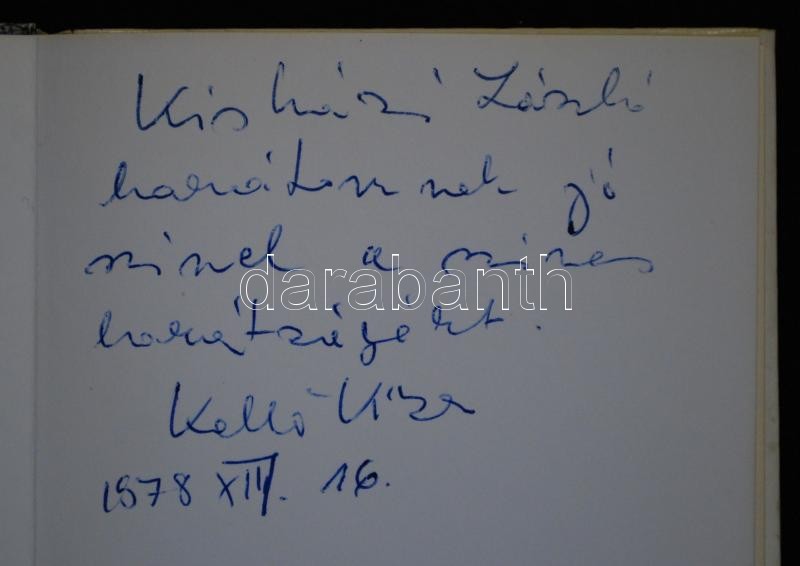 Kisházi László
barátomnak jó
szivvel a szives
barátságért.
1978 XII. 16.
darabanth